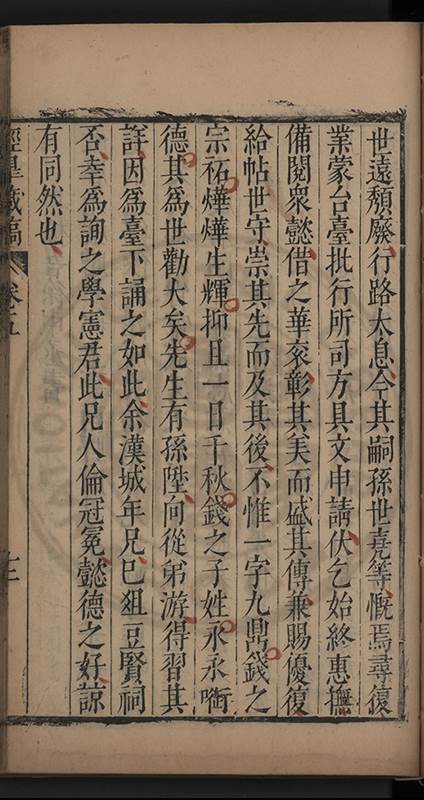 世遠頹廢行路太息今其嗣孫世堯等慨焉尋復
業蒙台臺批行所司方具文申請伏乞始終惠撫
備閱衆懿借之華衮彰其美而盛其傳兼賜優復
給帖世守崇其先而及其後不惟一字九鼎錢之
宗祏燁燁生輝抑且一日千秋錢之子姓永永啣
德其爲世勸大矣先生有孫陞向從弟游得習其
詳因爲臺下誦之如此余漢城年兄巳俎豆賢祠
否幸爲詢之學憲君此兄人倫冠冕懿德之好諒
有同然也
藏稿
卷五